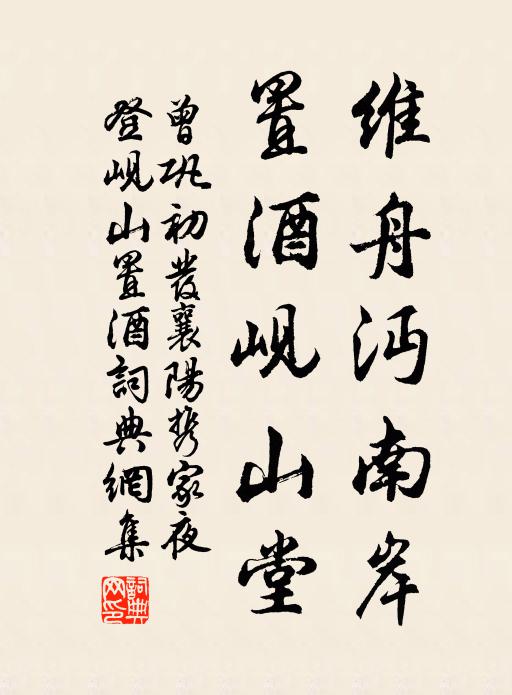 維舟沔南岸
置酒峴山堂
曾巩初發襄陽携家夜
登峴山置酒詞典網集
詞典网印